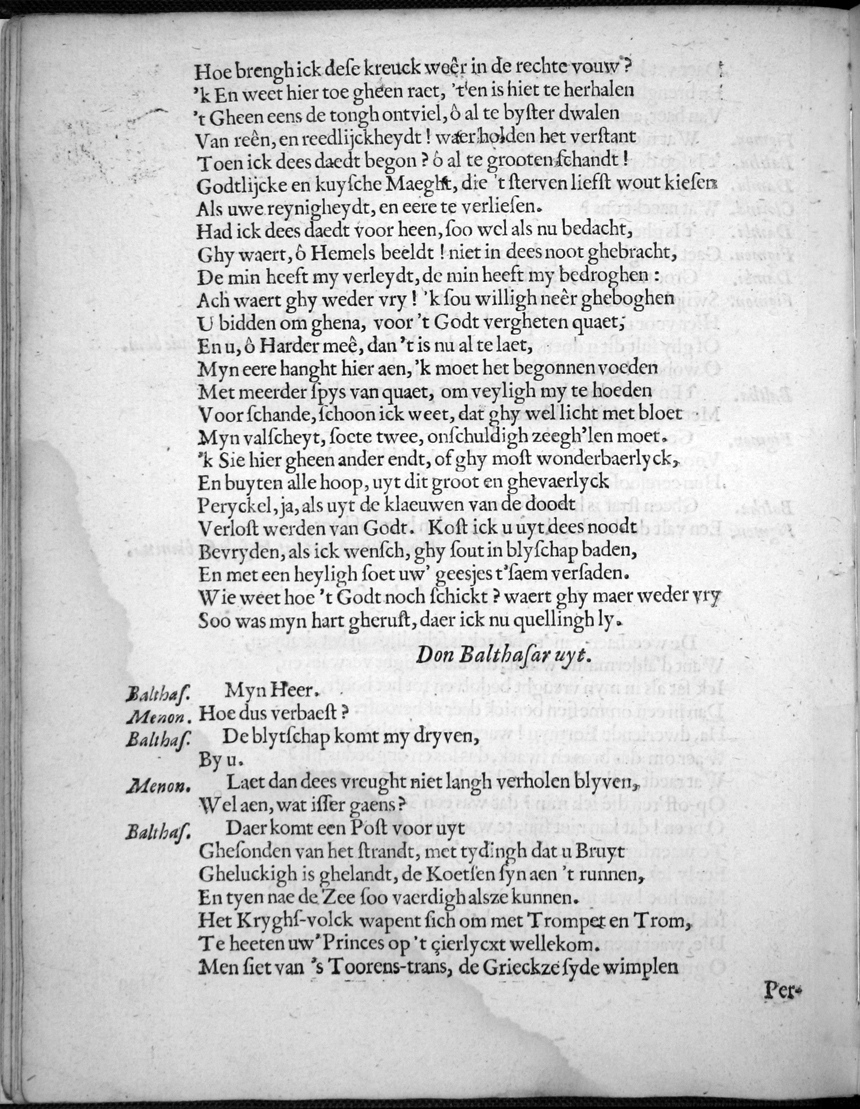 Hoe brengh ick deſe kreuck weêr in de rechte vouw?
'k En weet hier toe gheen raet, 't'en is hiet te herhalen
't Gheen eens de tongh ontviel, ô al te byſter dwalen
Van reên, en reedlijckheydt! waer holden het verſtant
Toen ick dees daedt begon? ô al te grooten ſchandt!
Godtlijcke en kuyſche Maeght, die 't ſterven liefſt wout kieſen
Als uwe reynigheydt, en eere te verlieſen.
Had ick dees daedt voor heen, ſoo wel als nu bedacht,
Ghy waert, ô Hemels beeldt! niet in dees noot ghebracht,
De min heeft my verleydt, de min heeft my bedroghen:
Ach waert ghy weder vry! 'k ſou willigh neêr gheboghen
U bidden om ghena, voor 't Godt vergheten quaet;
En u, ô Harder meê, dan 't is nu al te laet,
Myn eere hanght hier aen, 'k moet het begonnen voeden
Met meerder ſpys van quaet, om veyligh my te hoeden
Voor ſchande, ſchoon ick weet, dat ghy wel licht met bloet
Myn valſcheyt, ſoete twee, onſchuldigh zeegh'len moet.
'k Sie hier gheen ander endt, of ghy moſt wonderbaerlyck,
En buyten alle hoop, uyt dit groot en ghevaerlyck
Peryckel, ja, als uyt de klaeuwen van de doodt
Verloſt werden van Godt. Koſt ick u uyt dees noodt
Bevryden, als ick wenſch, ghy ſout in blyſchap baden,
En met een heyligh ſoet uw' geesjes t'ſaem verſaden.
Wie weet hoe 't Godt noch ſchickt? waert ghy maer weder vry
Soo was myn hart gheruſt, daer ick nu quellingh ly.
Don Balthaſar uyt.
Balthaſ. Myn Heer.
Menon. Hoe dus verbaeſt?
Balthaſ. De blytſchap komt my dryven,
By u.
Menon. Laet dan dees vreught niet langh verholen blyven,
Wel aen, wat iſſer gaens?
Balthaſ. Daer komt een Poſt voor uyt
Gheſonden van het ſtrandt, met tydingh dat u Bruyt
Gheluckigh is ghelandt, de Koetſen ſyn aen 't runnen,
En tyen nae de Zee ſoo vaerdigh alsze kunnen.
Het Kryghſ-volck wapent ſich om met Trompet en Trom,
Te heeten uw' Princes op 't çierlycxt wellekom.
Men ſiet van 's Toorens-trans, de Grieckze ſyde wimplen
Per-